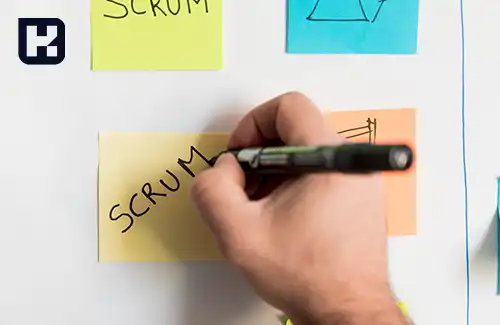 SCRUM
SCRUM